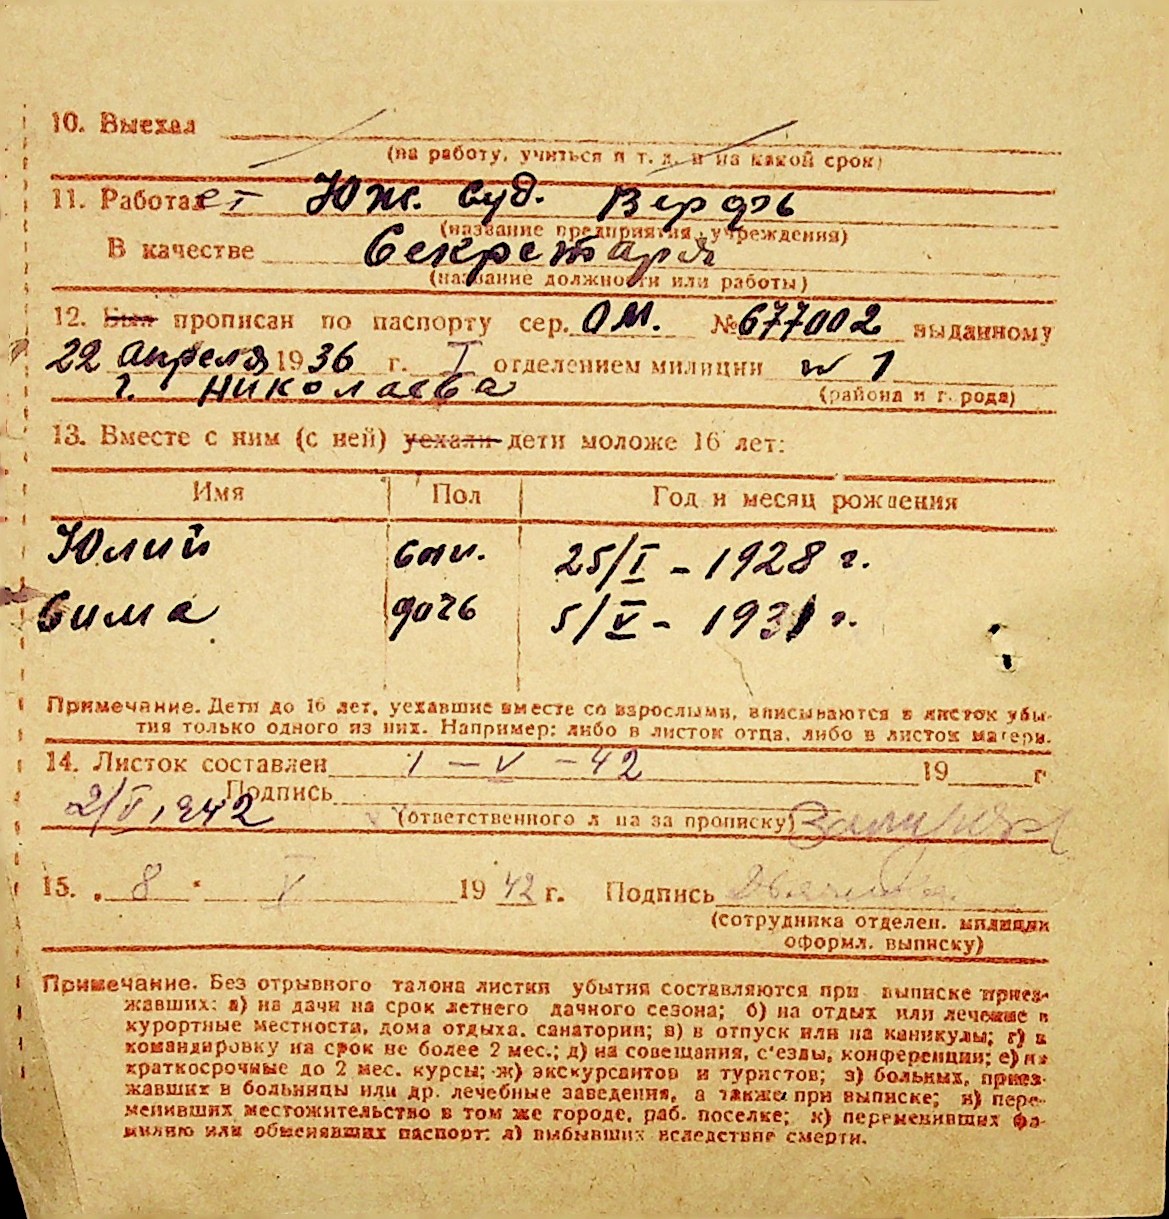 10. Выехал
(на работу, учиться и т. д. и на какой срок)
11. Работает Юж. Суд. Верфь
(название предприятия, учреждения)
В качестве Секретаря
(название должности или работы)
12. Был прописан по паспорту сер. ОМ. № 677002 выданному
22 апреля 1936 г. I отделением милиции N 1
г. Николаева (района и города)
13. Вместе с ним (с ней) уехали дети моложе 16 лет:
Имя Пол Год и месяц рождения
Юлий сын. 25/I - 1928 г.
Сима дочь 5/V - 1931 г.
Примечание. Дети до 16 лет, уехавшие вместе со взрослыми, вписываются в листок убы-
тия только одного из них. Например: либо в листок отца, либо в листок матери.
14. Листок составлен 1 - V - 42 19 г.
Подпись
2/V, 942 (ответственного лица за прописку)
15. „ 8 “ V 1942 г. Подпись
(сотрудника отделен. милиции
оформл. выписку)
Примечание. Без отрывного талона листки убытия составляются при выписке приез-
жавших: а) на дачи на срок летнего дачного сезона; б) на отдых или лечение в
курортные местности, дома отдыха, санатории; в) в отпуск или на каникулы; г) в
командировку на срок не более 2 мес.; д) на совещания, с'езды, конференции; е) на
краткосрочные до 2 мес. курсы; ж) экскурсантов и туристов; з) больных, приез-
жавших в больницы или др. лечебные заведения, а также при выписке; и) пере-
менивших местожительство в том же городе, раб. поселке; к) переменивших фа-
милию или обменявших паспорт; л) выбывших вследствие смерти.